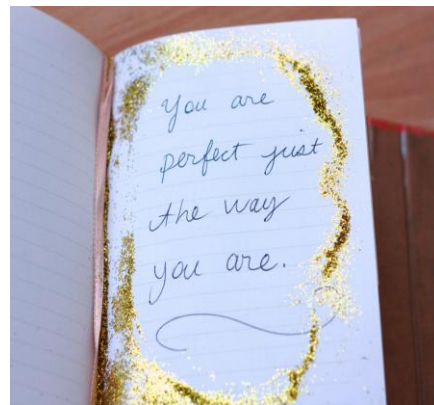 You are
perfect just
the way
you are.